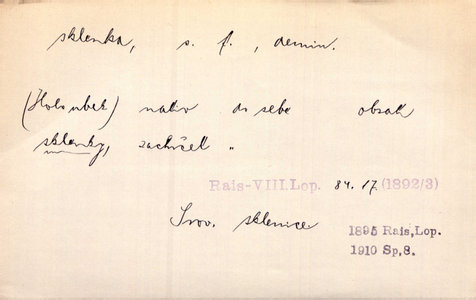 sklenka, s. f., demin.
(Holoubek) naliv do sebe obsah
sklenky, zachrčel „
Rais-VIII.Lop. 84.17 (1892/3)
Srov. sklenice
1895 Rais,Lop.
1910 Sp,8.